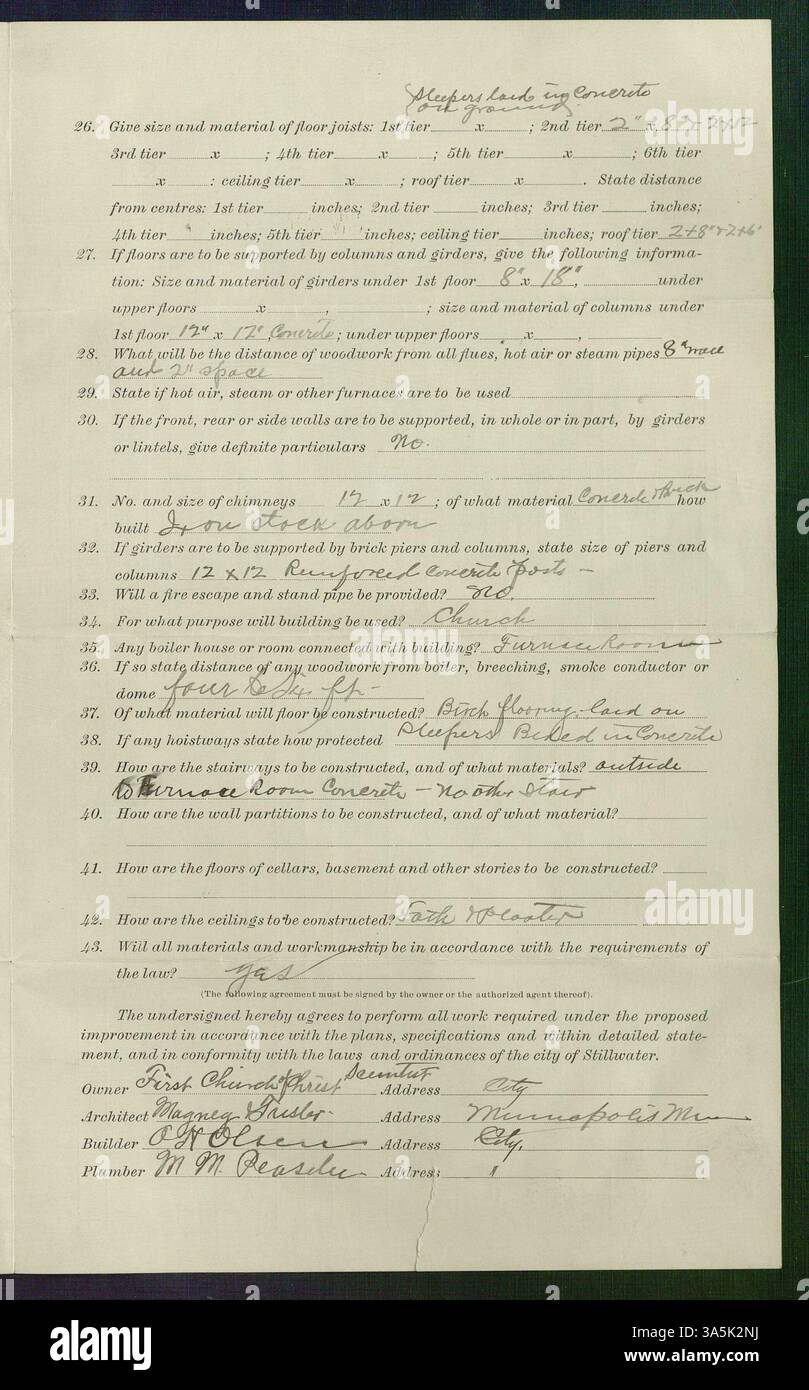 Sleepers laid in Concrete
on ground
26. Give size and material of floor joists: 1st tier x ; 2nd tier 2" x 8" & 2x12
3rd tier x ; 4th tier x ; 5th tier x ; 6th tier
x : ceiling tier x ; roof tier x . State distance
from centres: 1st tier inches; 2nd tier inches; 3rd tier inches;
4th tier " inches; 5th tier inches; ceiling tier inches; roof tier 2x8" & 2x6"
27. If floors are to be supported by columns and girders, give the following informa-
tion: Size and material of girders under 1st floor 8" x 18", under
upper floors x , ; size and material of columns under
1st floor 12" x 12", Concrete; under upper floors x ,
28. What will be the distance of woodwork from all flues, hot air or steam pipes 8" wall
and 2" space
29. State if hot air, steam or other furnaces are to be used
30. If the front, rear or side walls are to be supported, in whole or in part, by girders
or lintels, give definite particulars No.
31. No. and size of chimneys 12 x 12 ; of what material Concrete & Brick how
built Iron stack above
32. If girders are to be supported by brick piers and columns, state size of piers and
columns 12 x 12 Reinforced Concrete posts —
33. Will a fire escape and stand pipe be provided? No.
34. For what purpose will building be used? Church
35. Any boiler house or room connected with building? Furnace Room
36. If so state distance of any woodwork from boiler, breeching, smoke conductor or
dome four to six ft —
37. Of what material will floor be constructed? Birch flooring laid on
38. If any hoistways state how protected Sleepers Beded in Concrete
39. How are the stairways to be constructed, and of what materials? outside
to Furnace Room Concrete — no other stair
40. How are the wall partitions to be constructed, and of what material?
41. How are the floors of cellars, basement and other stories to be constructed?
42. How are the ceilings to be constructed? Lath & Plaster
43. Will all materials and workmanship be in accordance with the requirements of
the law? yes
(The following agreement must be signed by the owner or the authorized agent thereof).
The undersigned hereby agrees to perform all work required under the proposed
improvement in accordance with the plans, specifications and within detailed state-
ment, and in conformity with the laws and ordinances of the city of Stillwater.
Owner First Church of Christ Scientist Address City
Architect Magney & Tusler Address Minneapolis Minn
Builder O H Olsen Address City.
Plumber M. M. Address "
alamy
a
alamy
Image ID: A5K2NJ
www.alamy.com